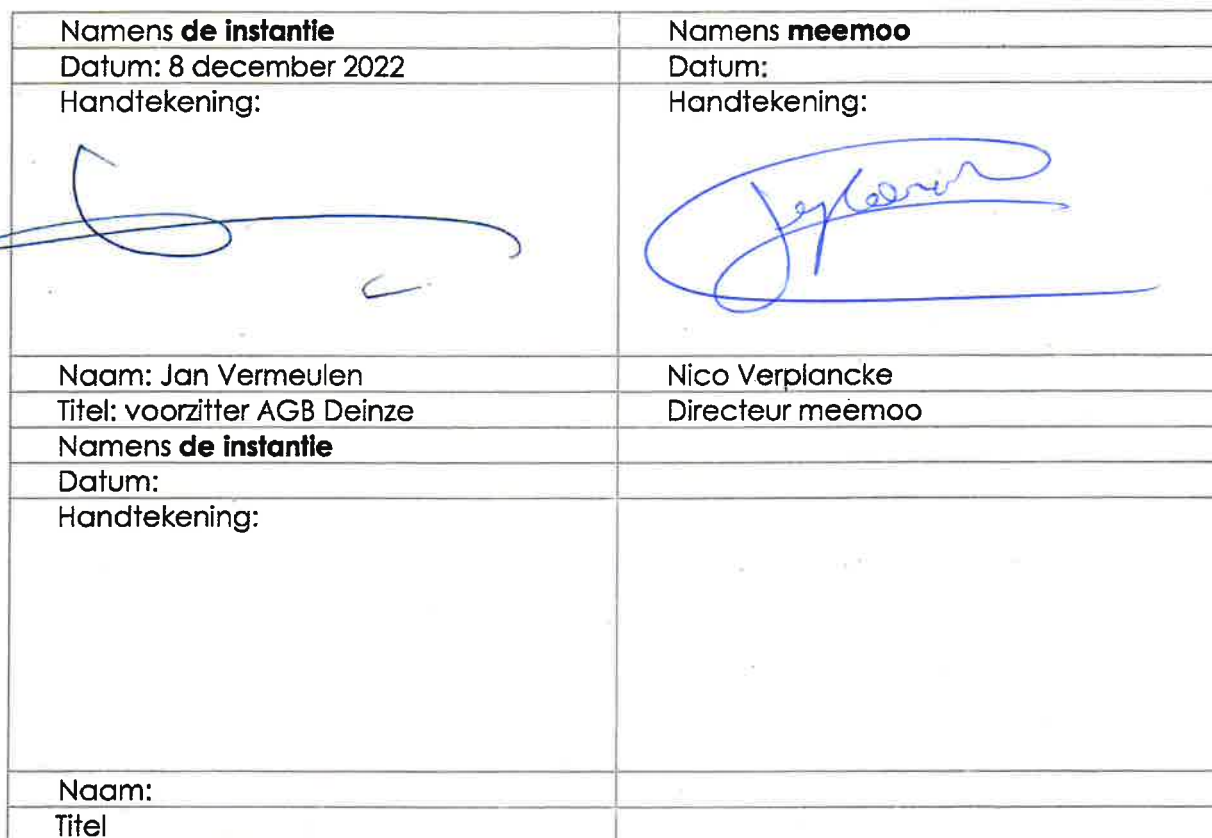 Namens de instantie
Namens meemoo
Datum: 8 december 2022
Datum:
Handtekening:
Handtekening:
Naam: Jan Vermeulen
Nico Verplancke
Titel: voorzitter AGB Deinze
Directeur meemoo
Namens de instantie
Datum:
Handtekening:
Naam:
Titel